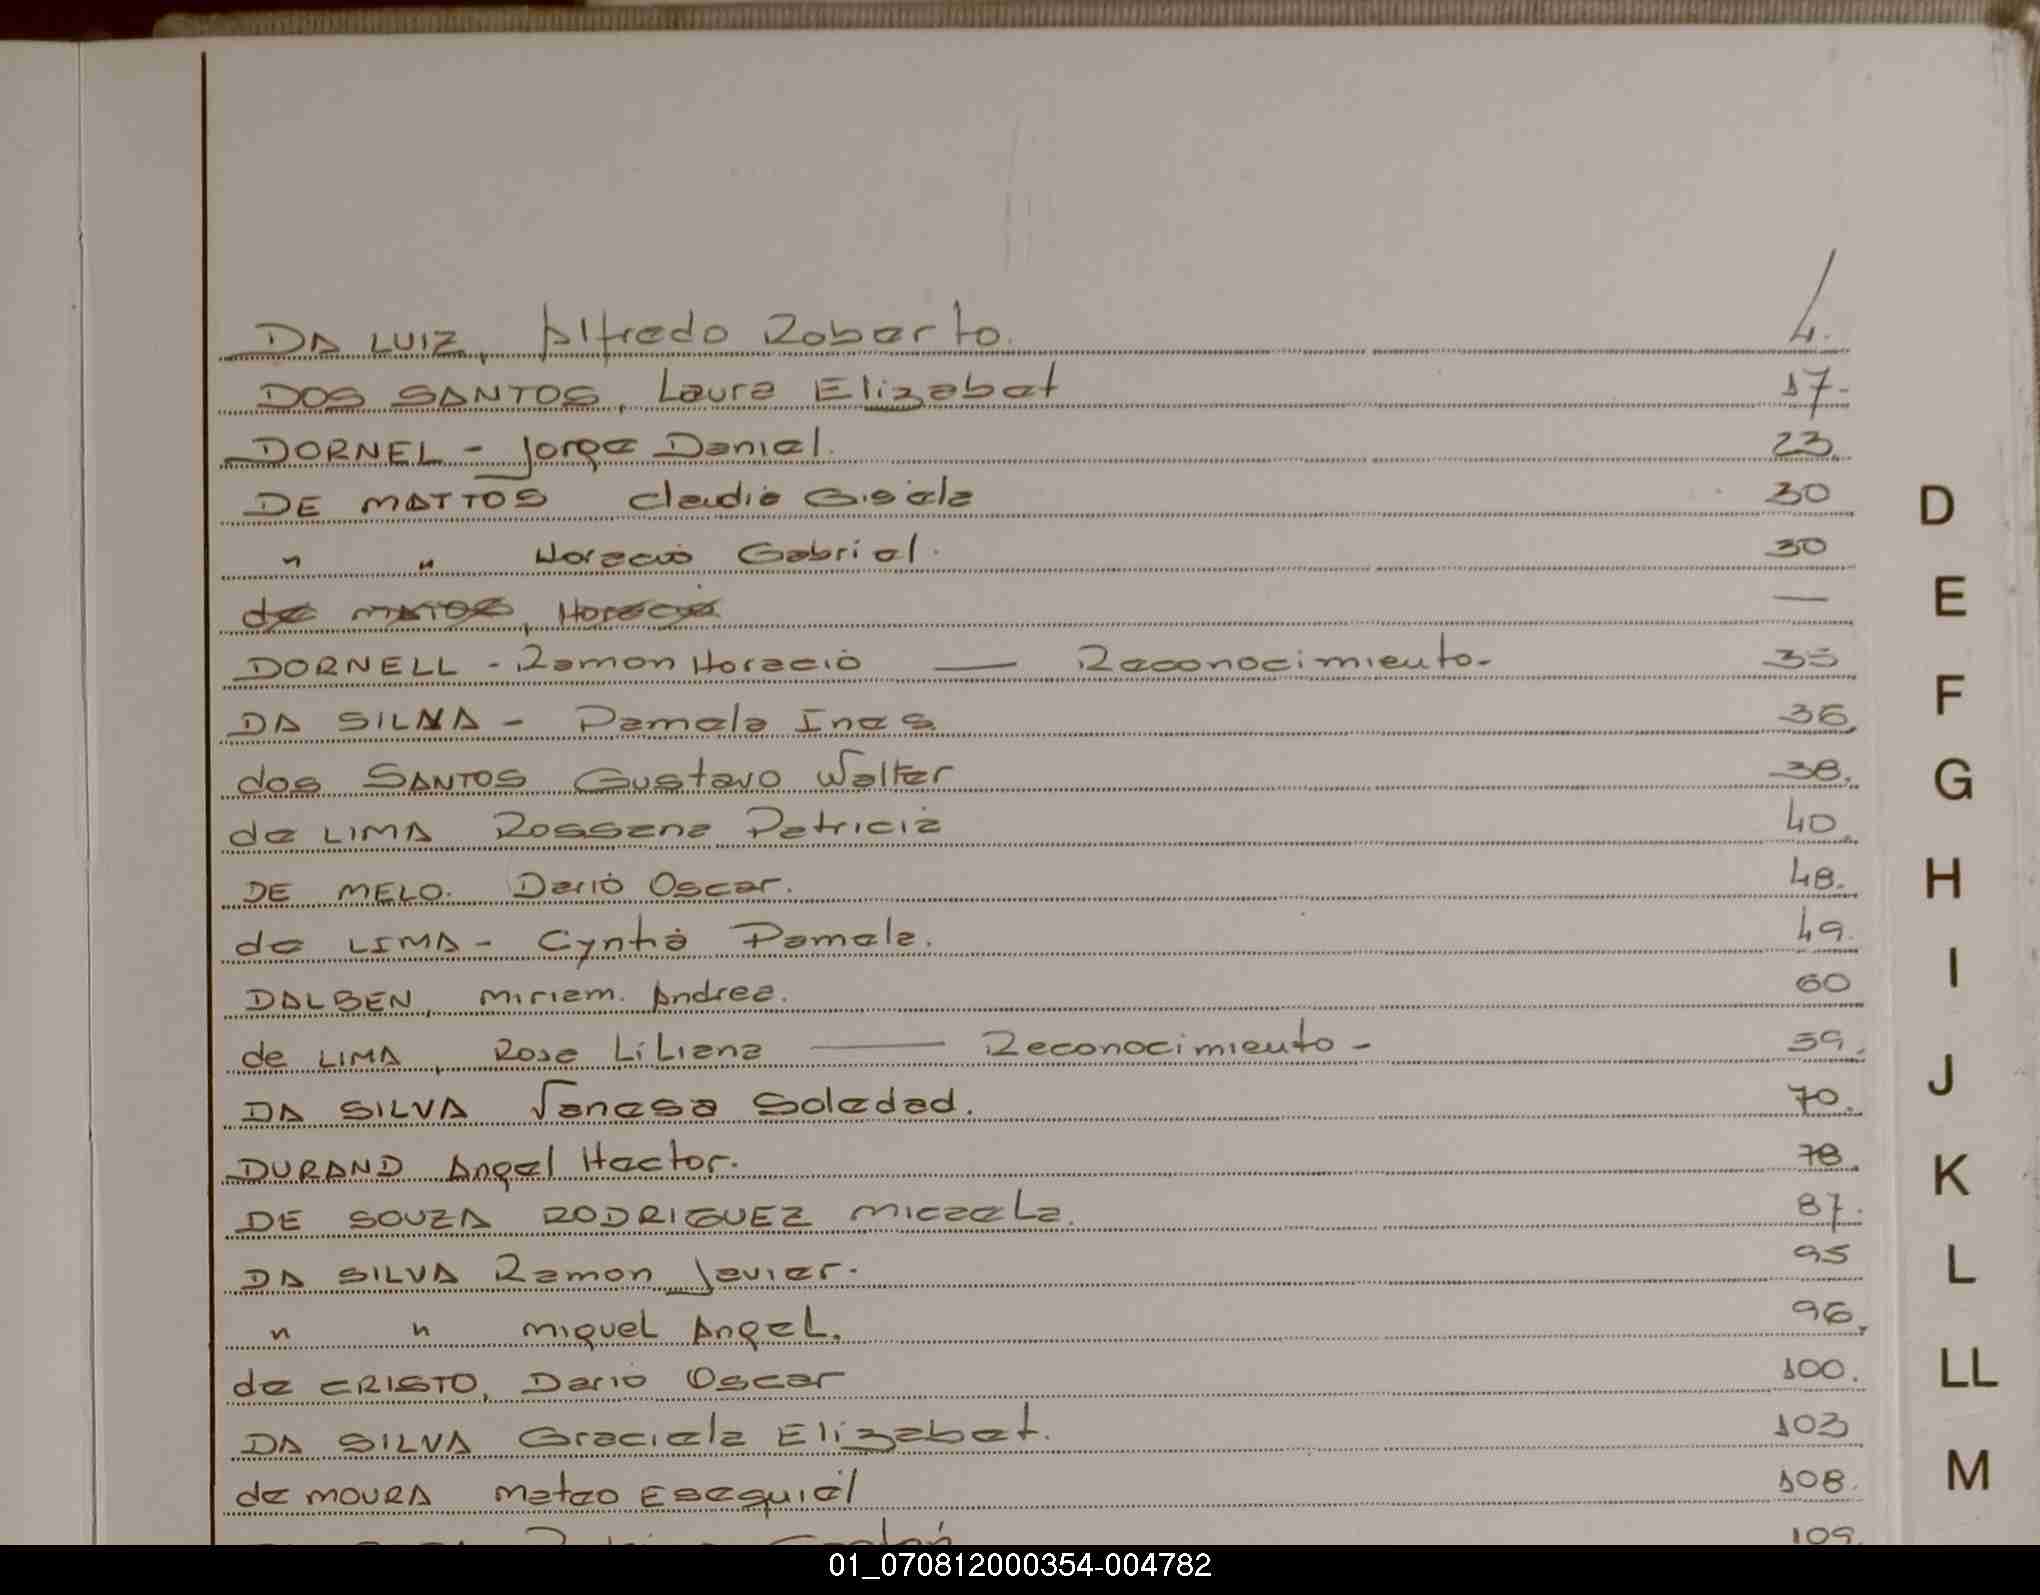 DA LUIZ, Alfredo Roberto. 4.
DOS SANTOS, Laura Elizabet 17.
DORNEL - Jorge Daniel. 23.
DE MATTOS Claudia Gisela 30
" " Horacio Gabriel. 30
de MATOS, Horacio —
DORNELL - Ramon Horacio — Reconocimiento- 35
DA SILVA - Pamela Ines 36.
dos SANTOS Gustavo Walter 38.
de LIMA Rossana Patricia 40.
DE MELO. Dario Oscar. 48.
de LIMA - Cyntha Pamela. 49.
DALBEN, Miriam. Andrea. 60
de LIMA, Rosa Liliana — Reconocimiento - 59.
DA SILVA Vanesa Soledad. 70.
DURAND Angel Hector. 78.
DE SOUZA RODRIGUEZ Micaela. 87.
DA SILVA Ramon Javier. 95
" " Miguel Angel. 96.
de CRISTO, Dario Oscar 100.
DA SILVA Graciela Elizabet. 103
de MOURA Mateo Esequiel 108.
109.
D
E
F
G
H
I
J
K
L
LL
M
01_070812000354-004782